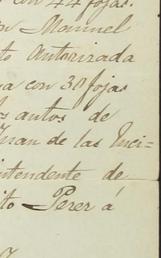 con 44 fojas.
Manuel
to autorizada
a con 38 fojas
os autos de
Juan de las Inci-
intendente de
ito Perez á